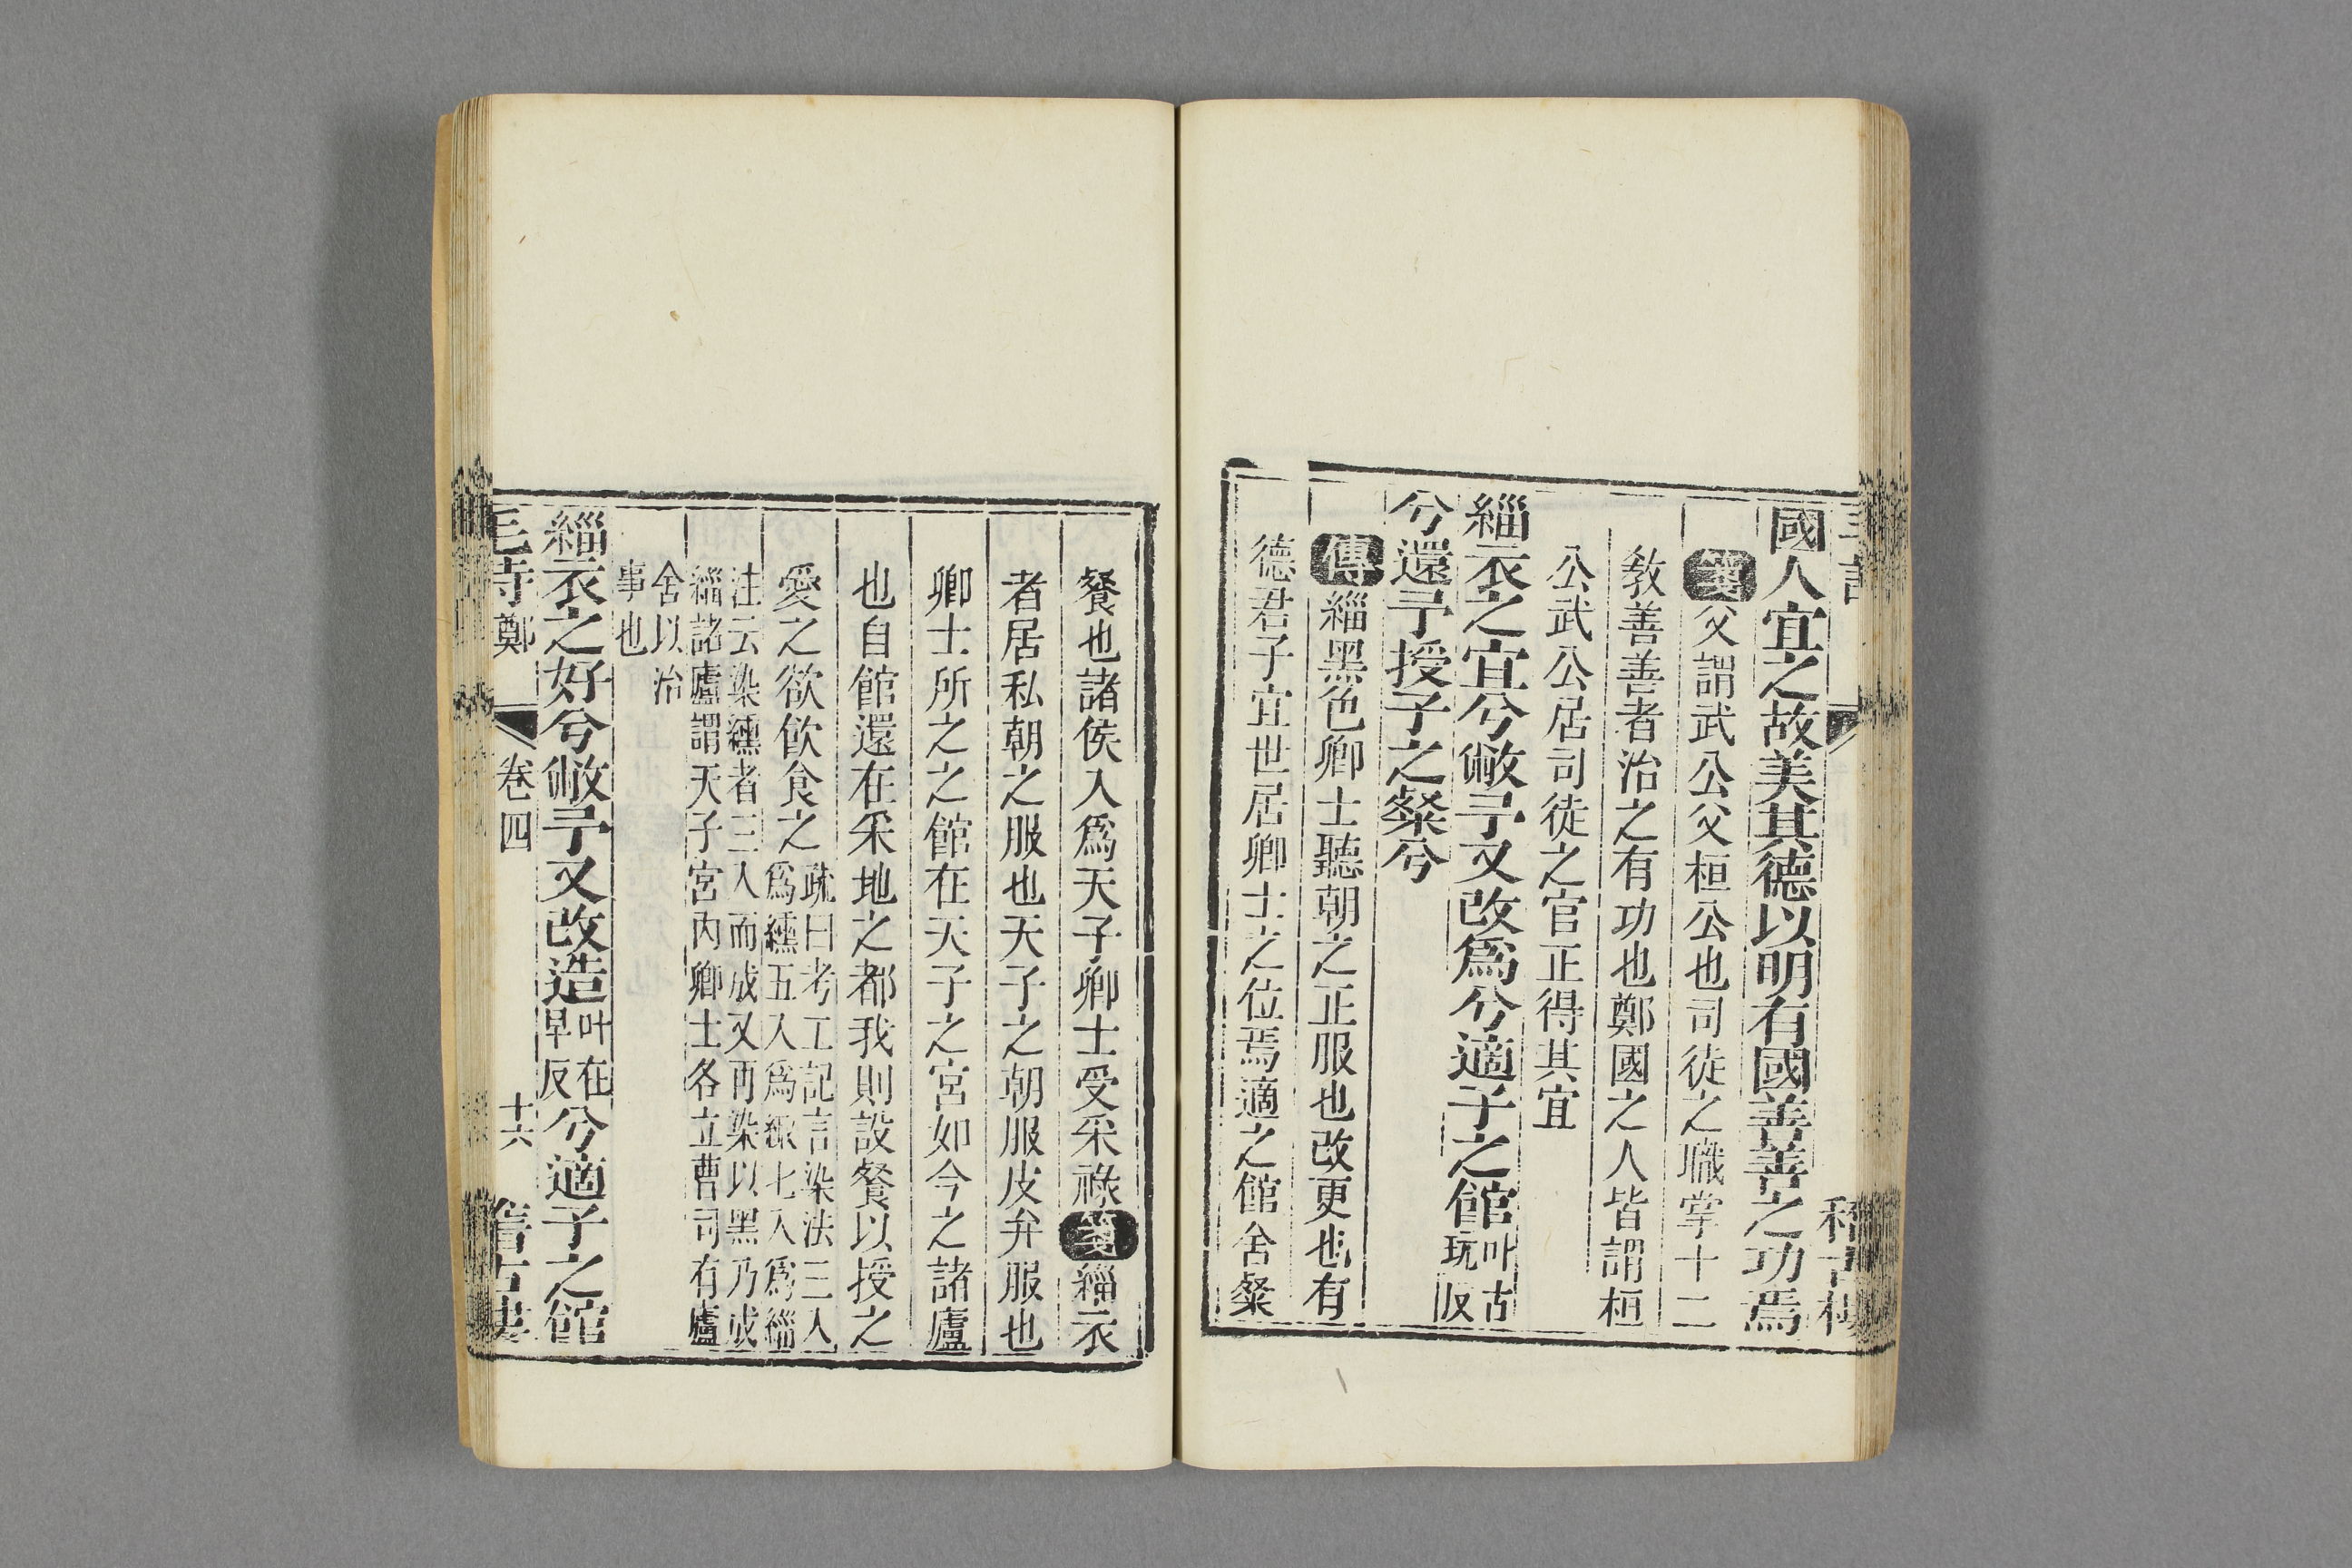 國人宜之故美其德以明有國善善之功焉
箋父謂武公父桓公也司徒之職掌十二
敎善善者治之有功也鄭國之人皆謂桓
公武公居司徒之官正得其宜
緇衣之宜兮敝予又改爲兮適子之館叶古
玩反
兮還予授子之粲兮
傳緇黑色卿士聽朝之正服也改更也有
德君子宜世居卿士之位焉適之館舍粲
餐也諸侯入爲天子卿士受采祿箋緇衣
者居私朝之服也天子之朝服皮弁服也
卿士所之之館在天子之宮如今之諸廬
也自館還在采地之都我則設餐以授之
愛之欲飮食之疏曰考工記言染法三入
爲纁五入爲緅七入爲緇
注云染纁者三入而成又再染以黑乃成
緇諸廬謂天子宮內卿士各立曹司有廬
舍以治
事也
緇衣之好兮敝予又改造叶在
早反
兮適子之館
毛詩鄭
卷四
十六